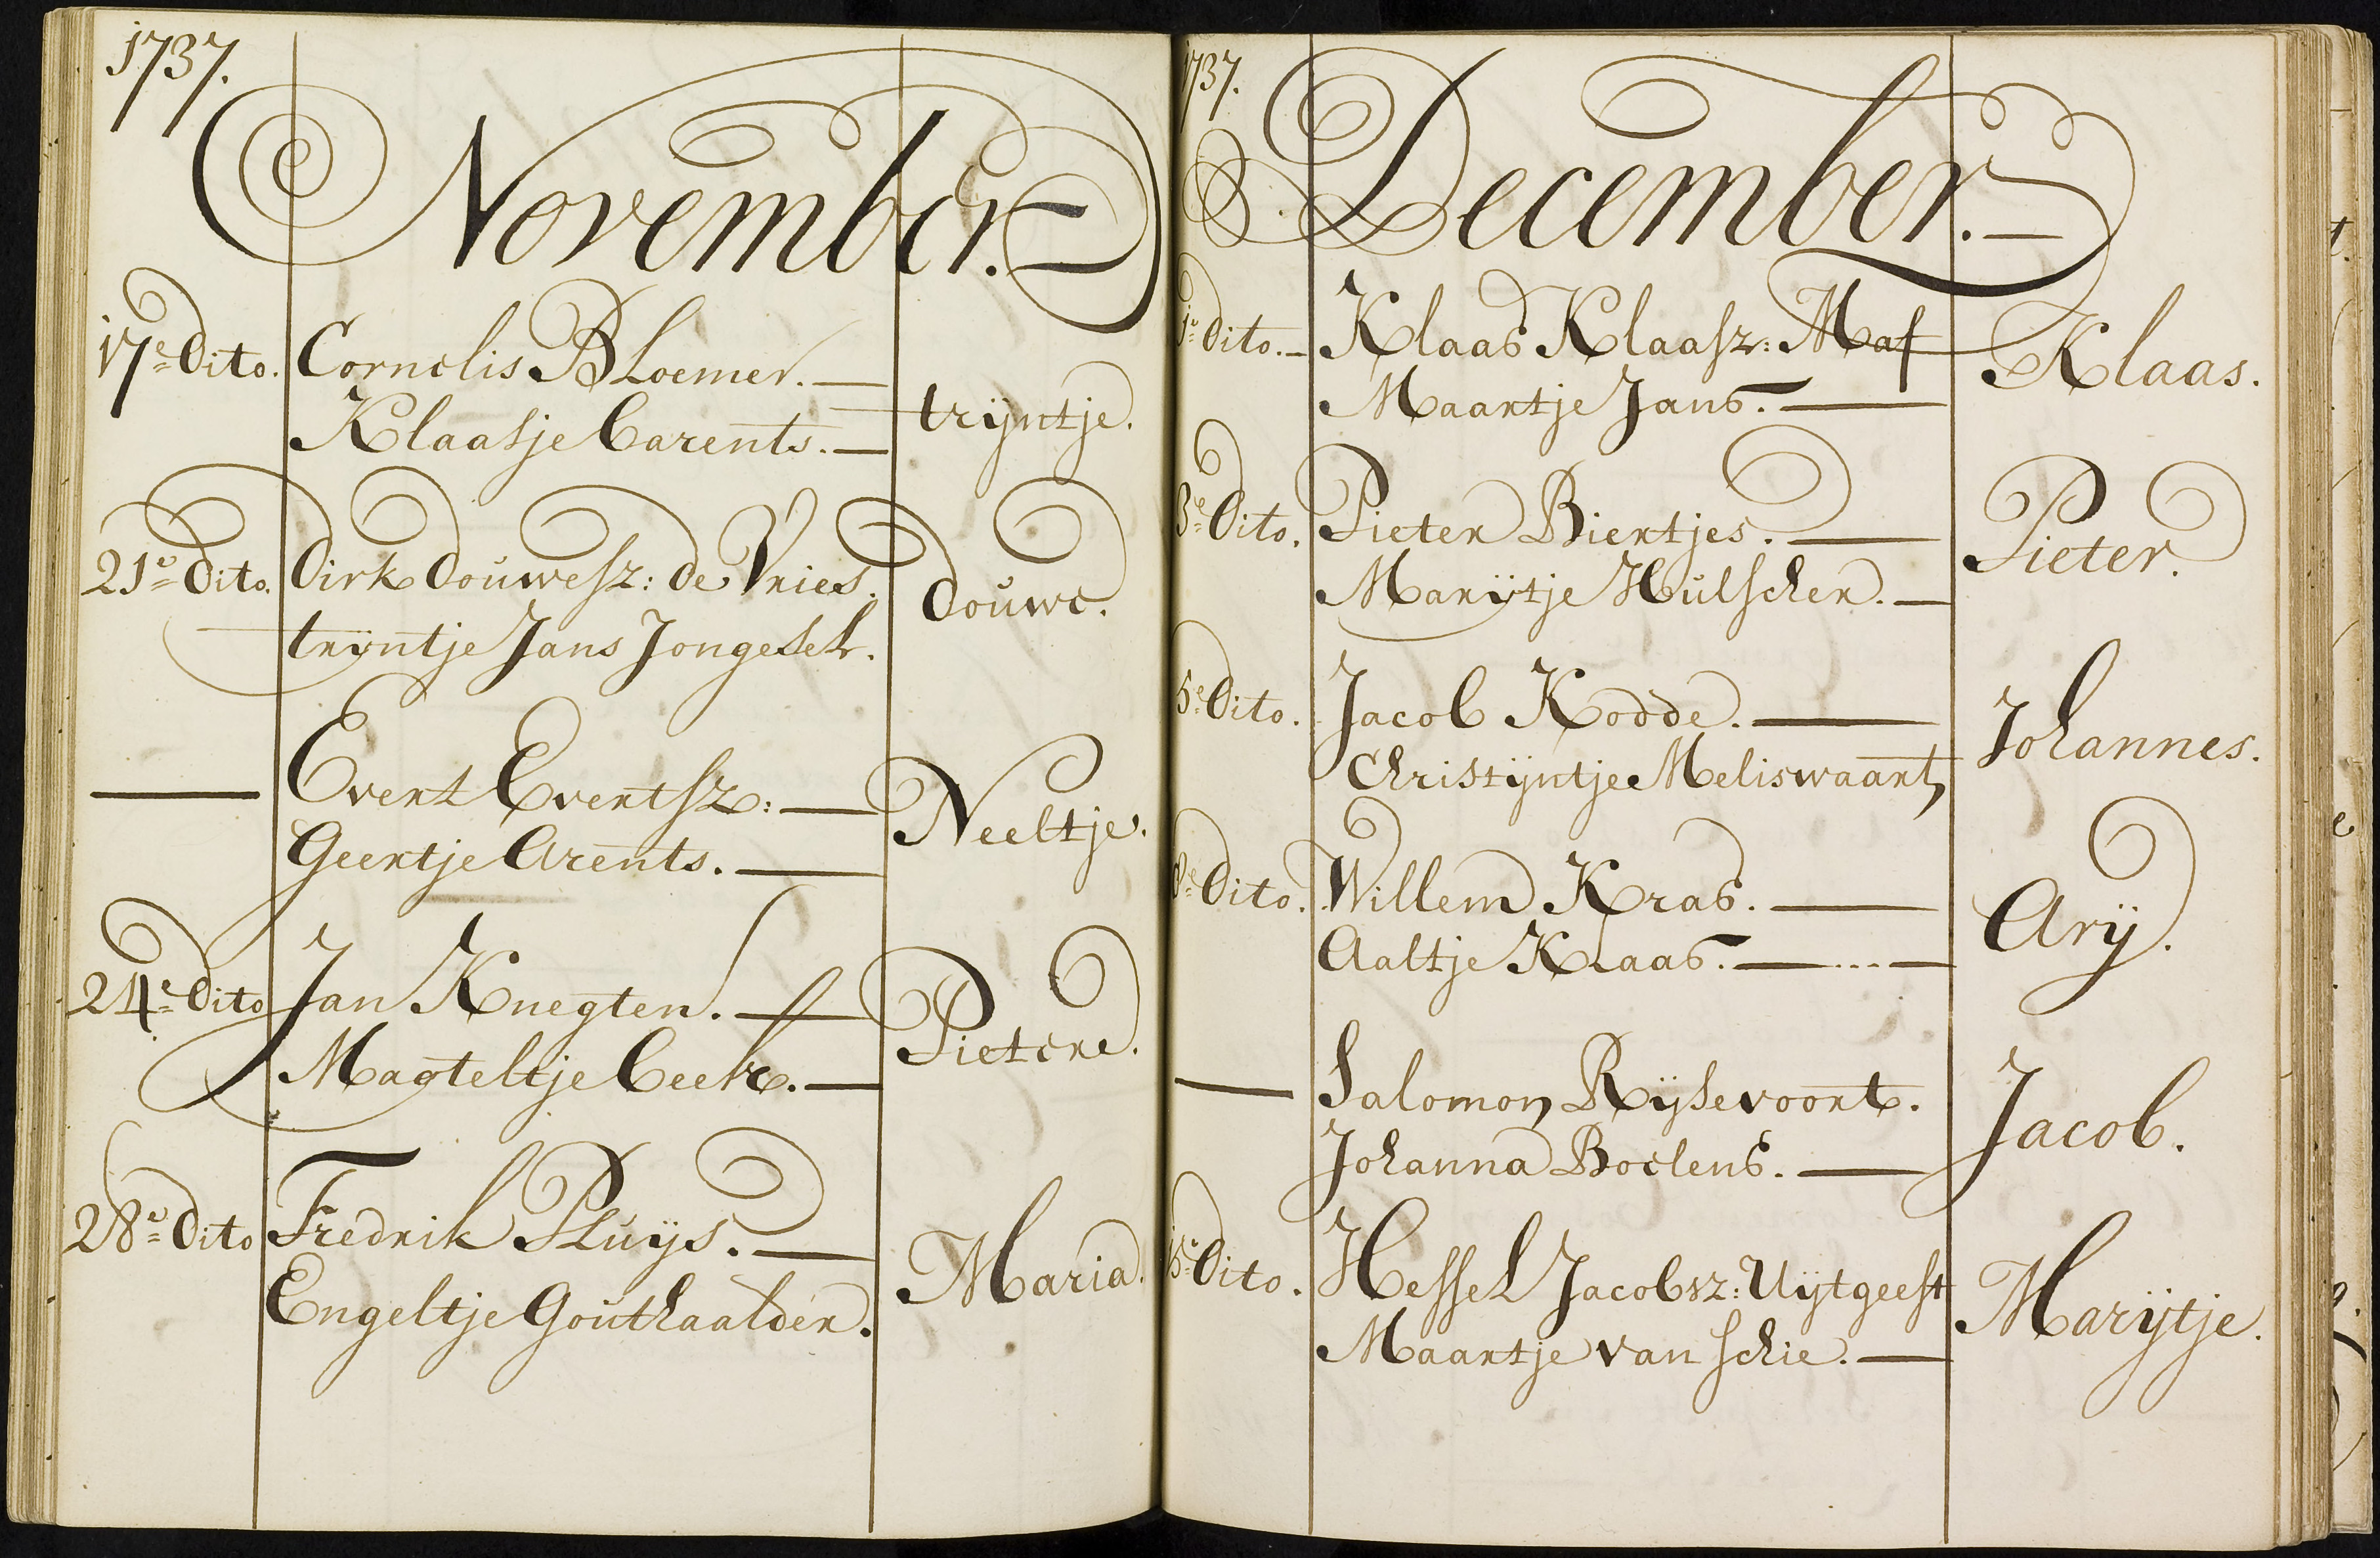 1737.
November.
17e Dito. Cornelis Bloemer.
Klaasje Barents. trijntje.
21e Dito. Dirk Douwesz: de Vries. Douwe.
trijntje Jans Jongekek.
Evert Evertsz:
Geertje Arents. Neeltje.
24e Dito Jan Knegten.
Magteltje Beek. Pieterne.
28e Dito Fredrik Pluijs.
Engeltje Gouthaalder. Maria.
1737.
December.
1e Dito. Klaas Klaasz: Maf Klaas.
Maartje Jans.
3e Dito. Pieter Biertjes. Pieter.
Marijtje Hulscher.
5e Dito. Jacob Kodde. Johannes.
Christijntje Meliswaart
8e Dito. Willem Kras. Arij.
Aaltje Klaas.
Salomon Rijsevoort. Jacob.
Johanna Boelens.
15e Dito. Hessel Jacobsz: Uijtgeest Marijtje.
Maartje van Schie.